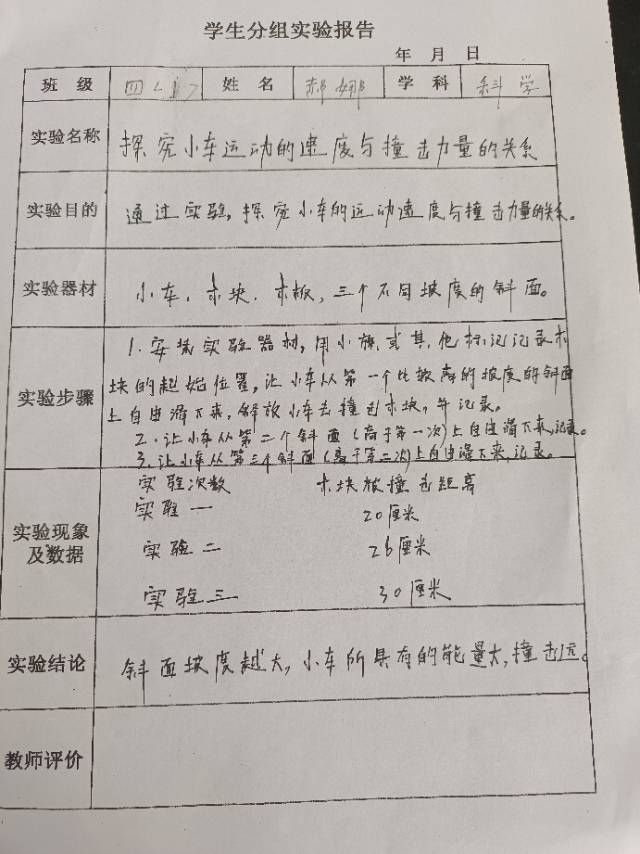 学生分组实验报告
年 月 日
班 级 四(1) 姓 名 郝娜 学 科 科学
实验名称 探究小车运动的速度与撞击力量的关系
实验目的 通过实验,探究小车的运动速度与撞击力量的关系。
实验器材 小车、木块、木板,三个不同坡度的斜面。
实验步骤
1.安装实验器材,用小旗或其他标记记录木
块的起始位置,让小车从第一个比较高的坡度的斜面
上自由滑下来,释放小车去撞击木块,并记录。
2.让小车从第二个斜面(高于第一次)上自由滑下来,记录。
3.让小车从第三个斜面(高于第二次)上自由滑下来,记录。
实验现象
及数据
实验次数 木块被撞击距离
实验一 20厘米
实验二 26厘米
实验三 30厘米
实验结论 斜面坡度越大,小车所具有的能量大,撞击远。
教师评价